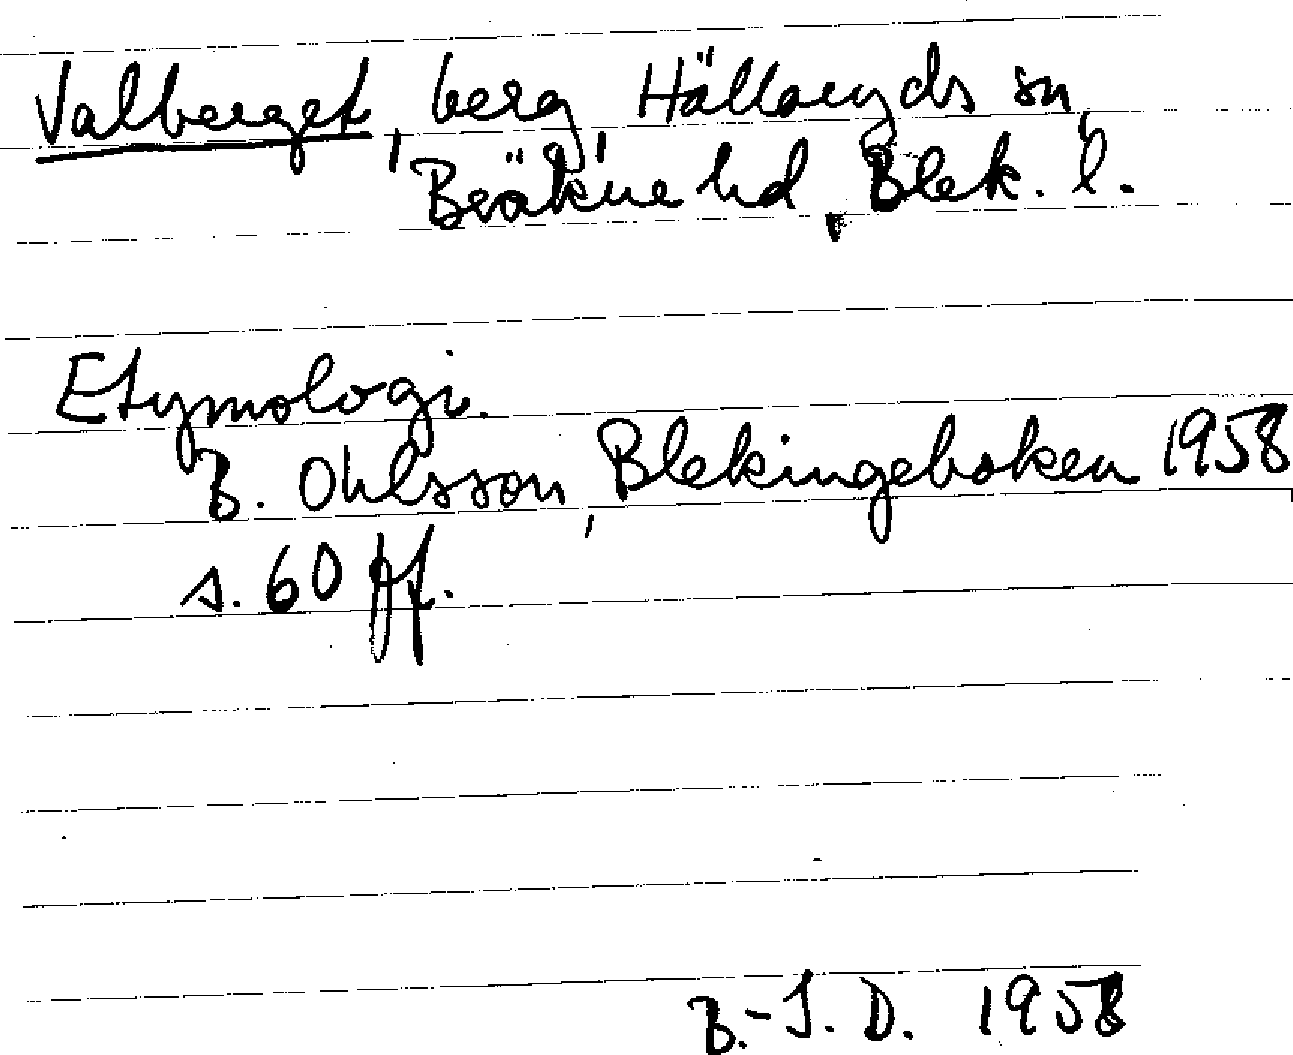 Valberget, berg, Hällaryds sn,
Bräkne hd, Blek. l.
Etymologi.
B. Ohlsson, Blekingeboken 1958
s. 60 ff.
B.-J. D. 1958